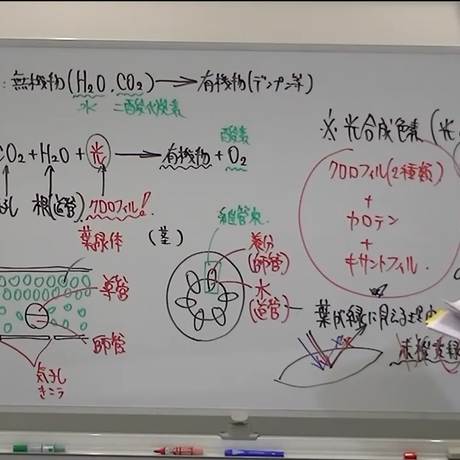 : 無機物(H₂O, CO₂) → 有機物(デンプン等)
水 二酸化炭素
CO₂ + H₂O + 光 → 有機物 + O₂
酸素
気孔 根(道管) クロロフィル!
葉緑体
(茎)
維管束
養分
(師管)
水
(道管)
師管
気孔
きこう
※光合成色素(光
クロロフィル(2種類)
+
カロテン
+
キサントフィル
葉が緑に見える理由